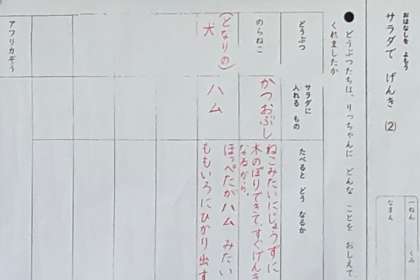 おはなしを よもう
サラダで げんき (2)
一ねん くみ
なまえ
●どうぶつたちは、りっちゃんに どんな ことを おしえて
くれましたか
どうぶつ
サラダに
入れる もの
たべると どう なるか
のらねこ
かつおぶし
ねこみたいにじょうずに
木のぼりできて、すぐげんき
になるから。
(となりの)
犬
ハム
ほっぺたがハム みたい
ももいろにひかり出す
アフリカぞう